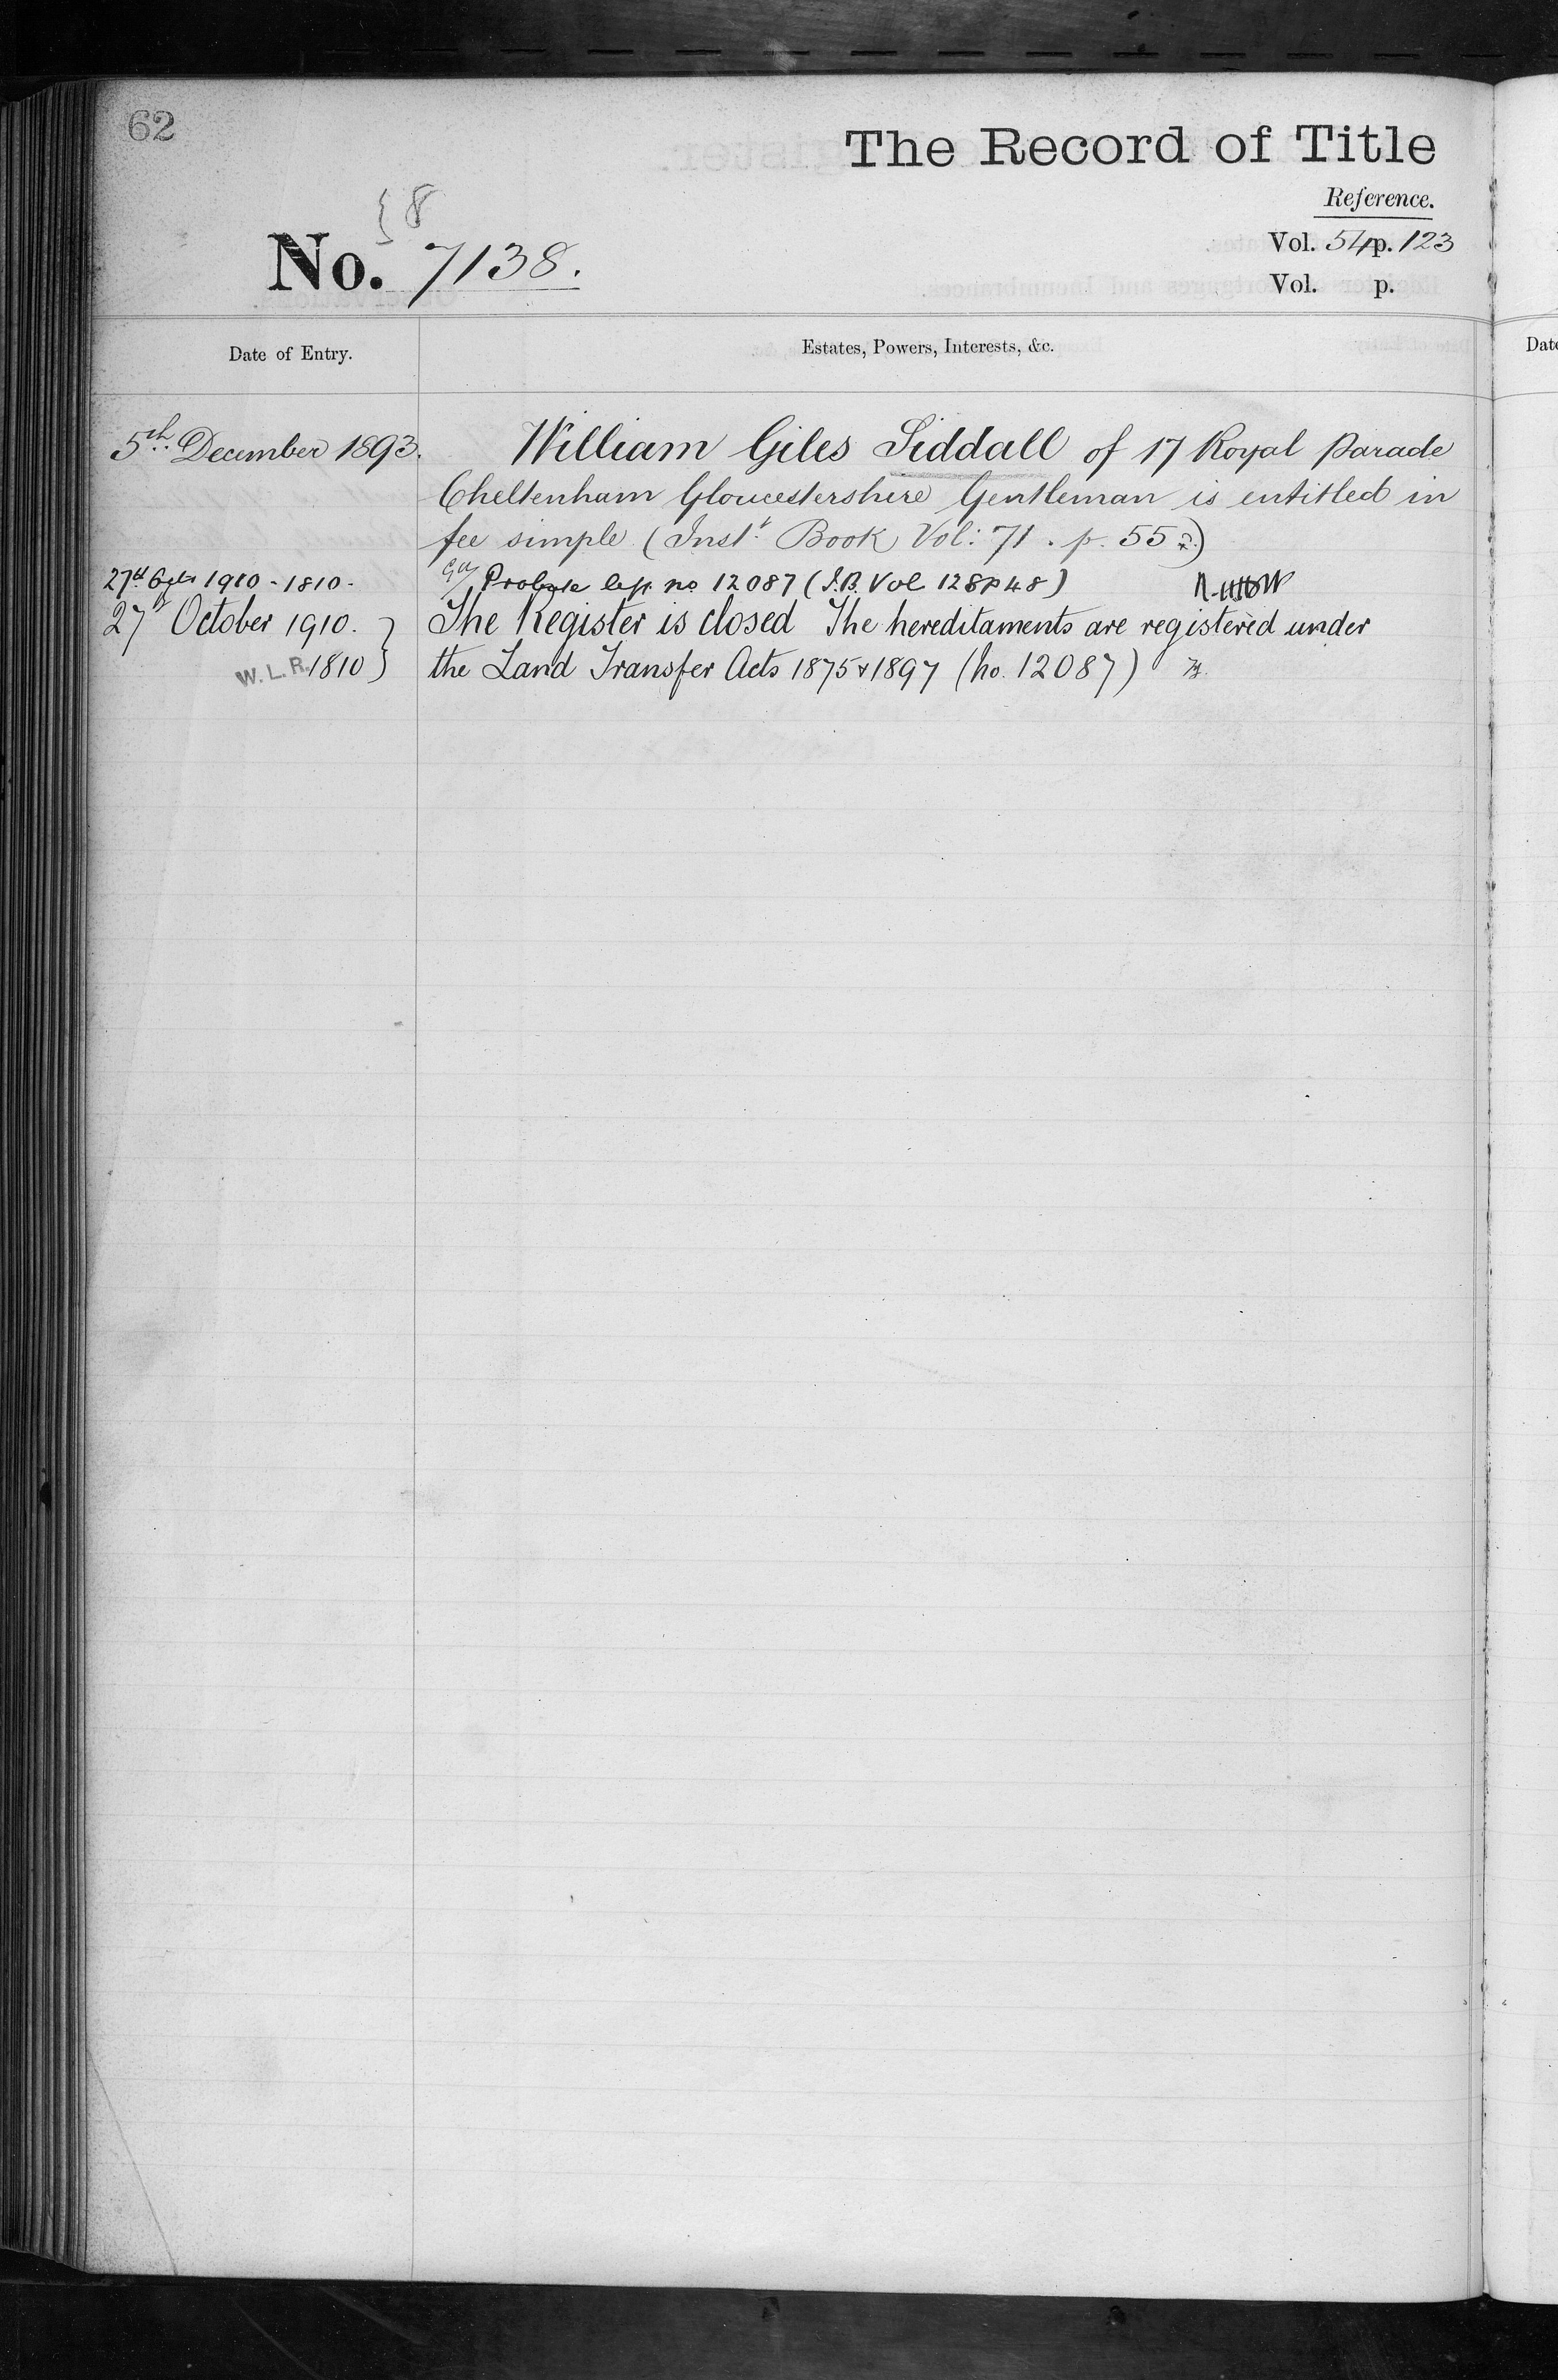 62
The Record of Title
Reference.
{8
No. 7138.
Vol. 54 p. 123
Vol. p.
Date of Entry.
Estates, Powers, Interests, &c.
5th December 1893.
William Giles Siddall of 17 Royal Parade
Cheltenham Gloucestershire Gentleman is entitled in
fee simple (Inst. Book Vol: 71. p. 55)
27th 1910 - 1810.
Probate no 12087 (I.B. Vol 128 p 48)
27th October 1910.
W. L. R. 1810
The Register is closed The hereditaments are registered under
the Land Transfer Acts 1875 & 1897 (No. 12087)
Date